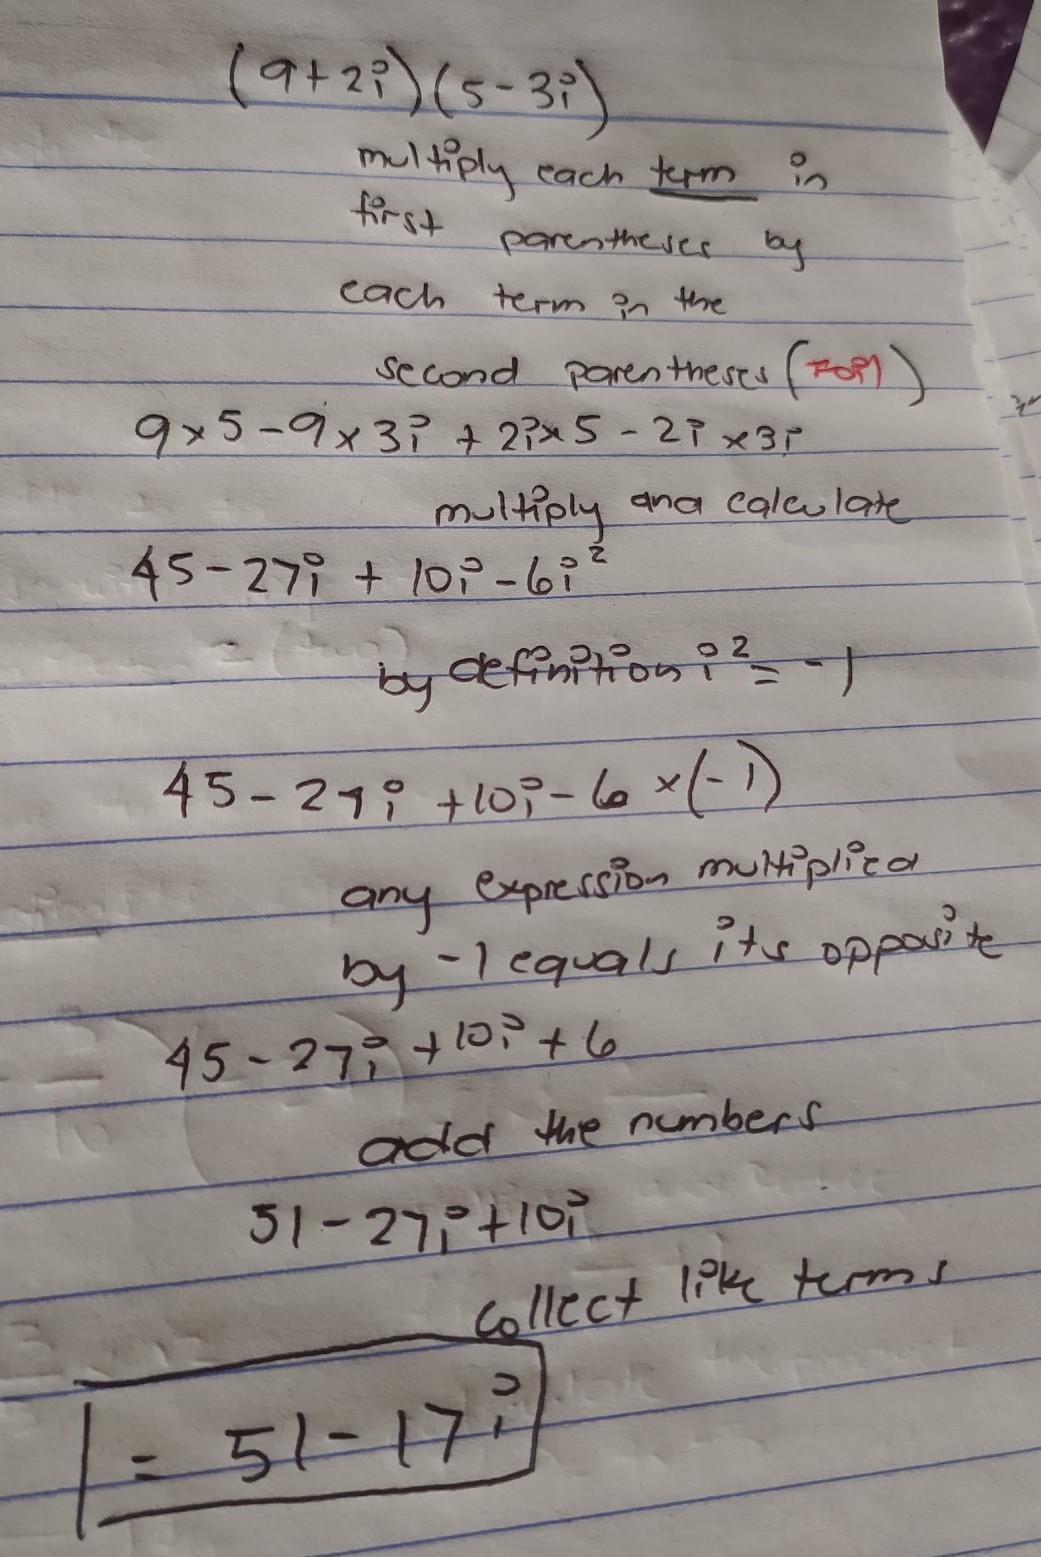 (9+2i)(5-3i)
multiply each term in
first parentheses by
each term in the
second parentheses (FOIL)
9×5-9×3i+2i×5-2i×3i
multiply and calculate
45-27i+10i-6i²
by definition i²=-1
45-27i+10i-6×(-1)
any expression multiplied
by -1 equals its opposite
45-27i+10i+6
add the numbers
51-27i+10i
collect like terms
= 51-17i